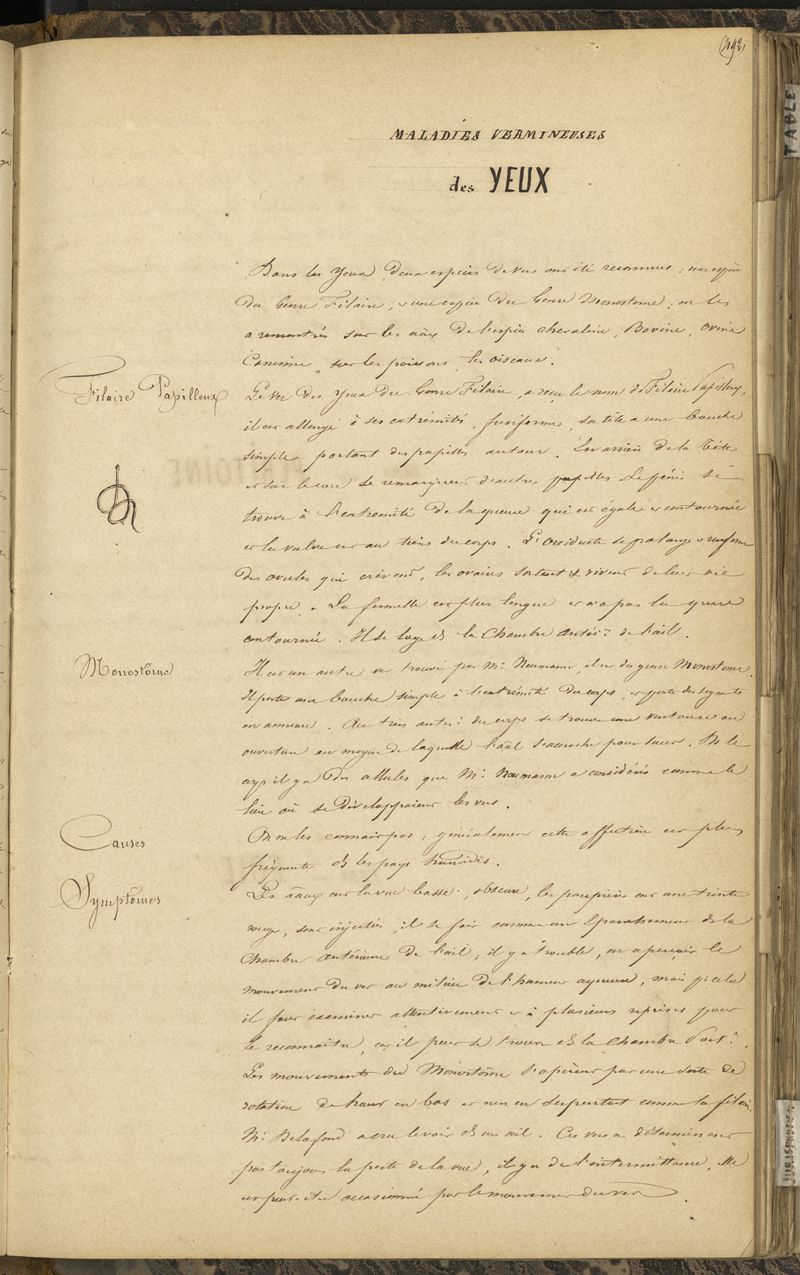 192
TABLE
MALADIES VERMINEUSES
des YEUX
Dans les yeux, deux espèces de vers ont été reconnues : une espèce
du Genre Filaire, & une espèce du Genre Monostome ; on les
a rencontrés sur les aux de l'espèce chevaline, Bovine, Ovine
Canine, sur les poissons, les oiseaux.
Filaire Papilleux
Le ver des yeux du Genre Filaire, a reçu le nom de Filaire Papilleux,
il est allongé à ses extrémités, fusiforme, sa tête a une bouche
simple portant des papilles autour. En arrière de la tête
et sur le cou se remarquent d'autres papilles. Le pénis se
trouve à l'extrémité de la queue qui est égale & contournée
et la vulve est au tiers du corps. L'oviducte se prolonge & renferme
des ovules qui crèvent, les ovaires sortent & vivent de leur vie
propre. La femelle est plus longue et n'a pas la queue
contournée. Il se loge ds la Chambre antér: de l'œil.
Monostome
Il est un autre ver trouvé par Mr. Neumann, il est du genre Monostome.
Il porte une bouche simple à l'extrémité du corps, et porte des segments
en anneau. Au tiers antér: du corps se trouve une ventouse ou
ouverture au moyen de laquelle l'aal s'accroche pour sucer. Ds le
corps il y a des cellules que Mr. Neumann a considérés comme le
lieu où se développaient les vers.
Causes
On ne les connait pas, généralement cette affection est plus
fréquente ds les pays humides.
Symptômes
Les aaux ont la vue basse, obscure, les paupières ont une teinte
rouge, sont injectées, il se fait comme un épanchement de la
Chambre antérieure de l'œil ; il y a trouble, on aperçoit le
mouvement du ver au milieu de l'humeur aqueuse, mais pr cela
il faut examiner attentivement et à plusieurs reprises pour
le reconnaître, car il peut se trouver ds la Chambre Postre.
Les mouvements du Monostome s'opèrent par une sorte de
rotation de haut en bas et non en serpentant comme la filaire.
Mr. Delafond a cru le voir ds un œil. Ces vers ne déterminent
pas toujours la perte de la vue, il y a de l'intermittence, elle
est peut-être occasionnée par le mouvement du ver.
JURISPRUDENCE